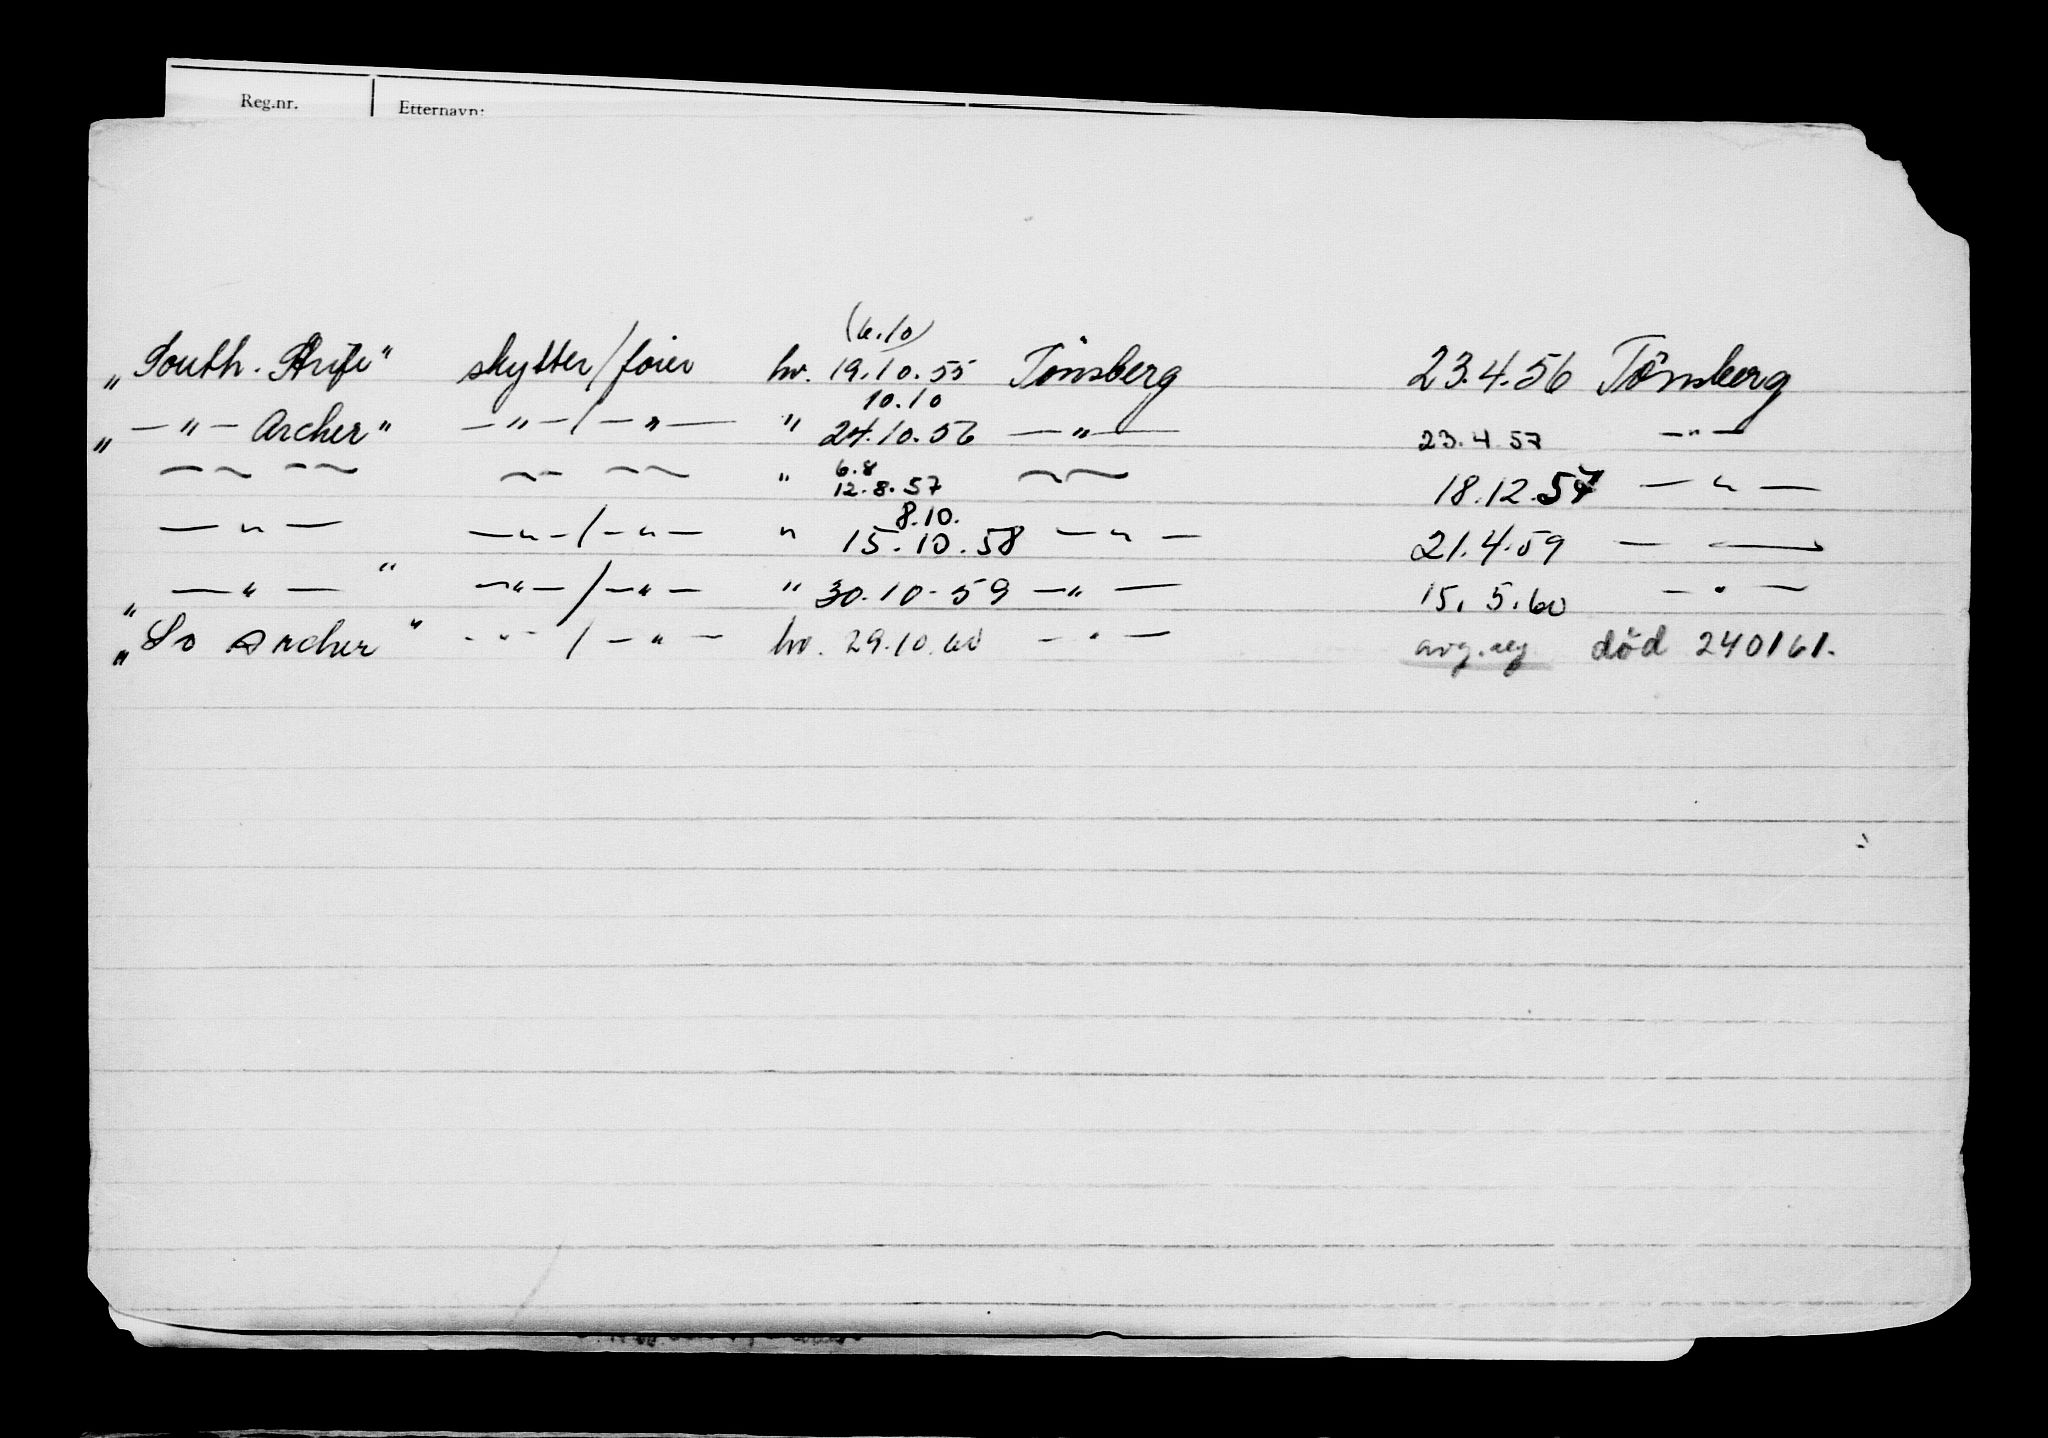 Reg.nr. Etternavn:
(6.10)
„South. " skytter/fører hv. 19.10.55 Tönsberg 23.4.56 Tönsberg
10.10
„ — " — Archer" — " — / — " — " 24.10.56 — " — 23.4.57 — " —
6.8
~~ ~~ ~~ ~~ " 12.8.57 ~~ 18.12.57 — " —
8.10.
— " — — " — / — " — " 15.10.58 — " — 21.4.59 — —
„ — " — " — " — / — " — " 30.10.59 — " — 15.5.60 — " —
„So Archer" — " — / — " — hv. 29.10.60 — " — død 240161.